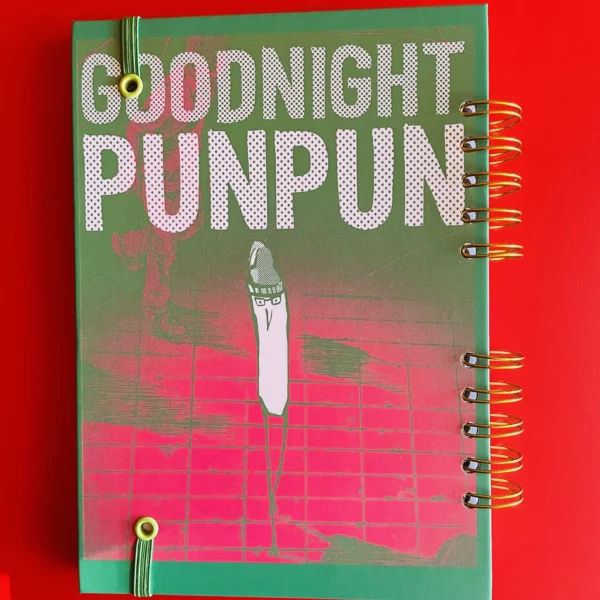 GOODNIGHT
PUNPUN